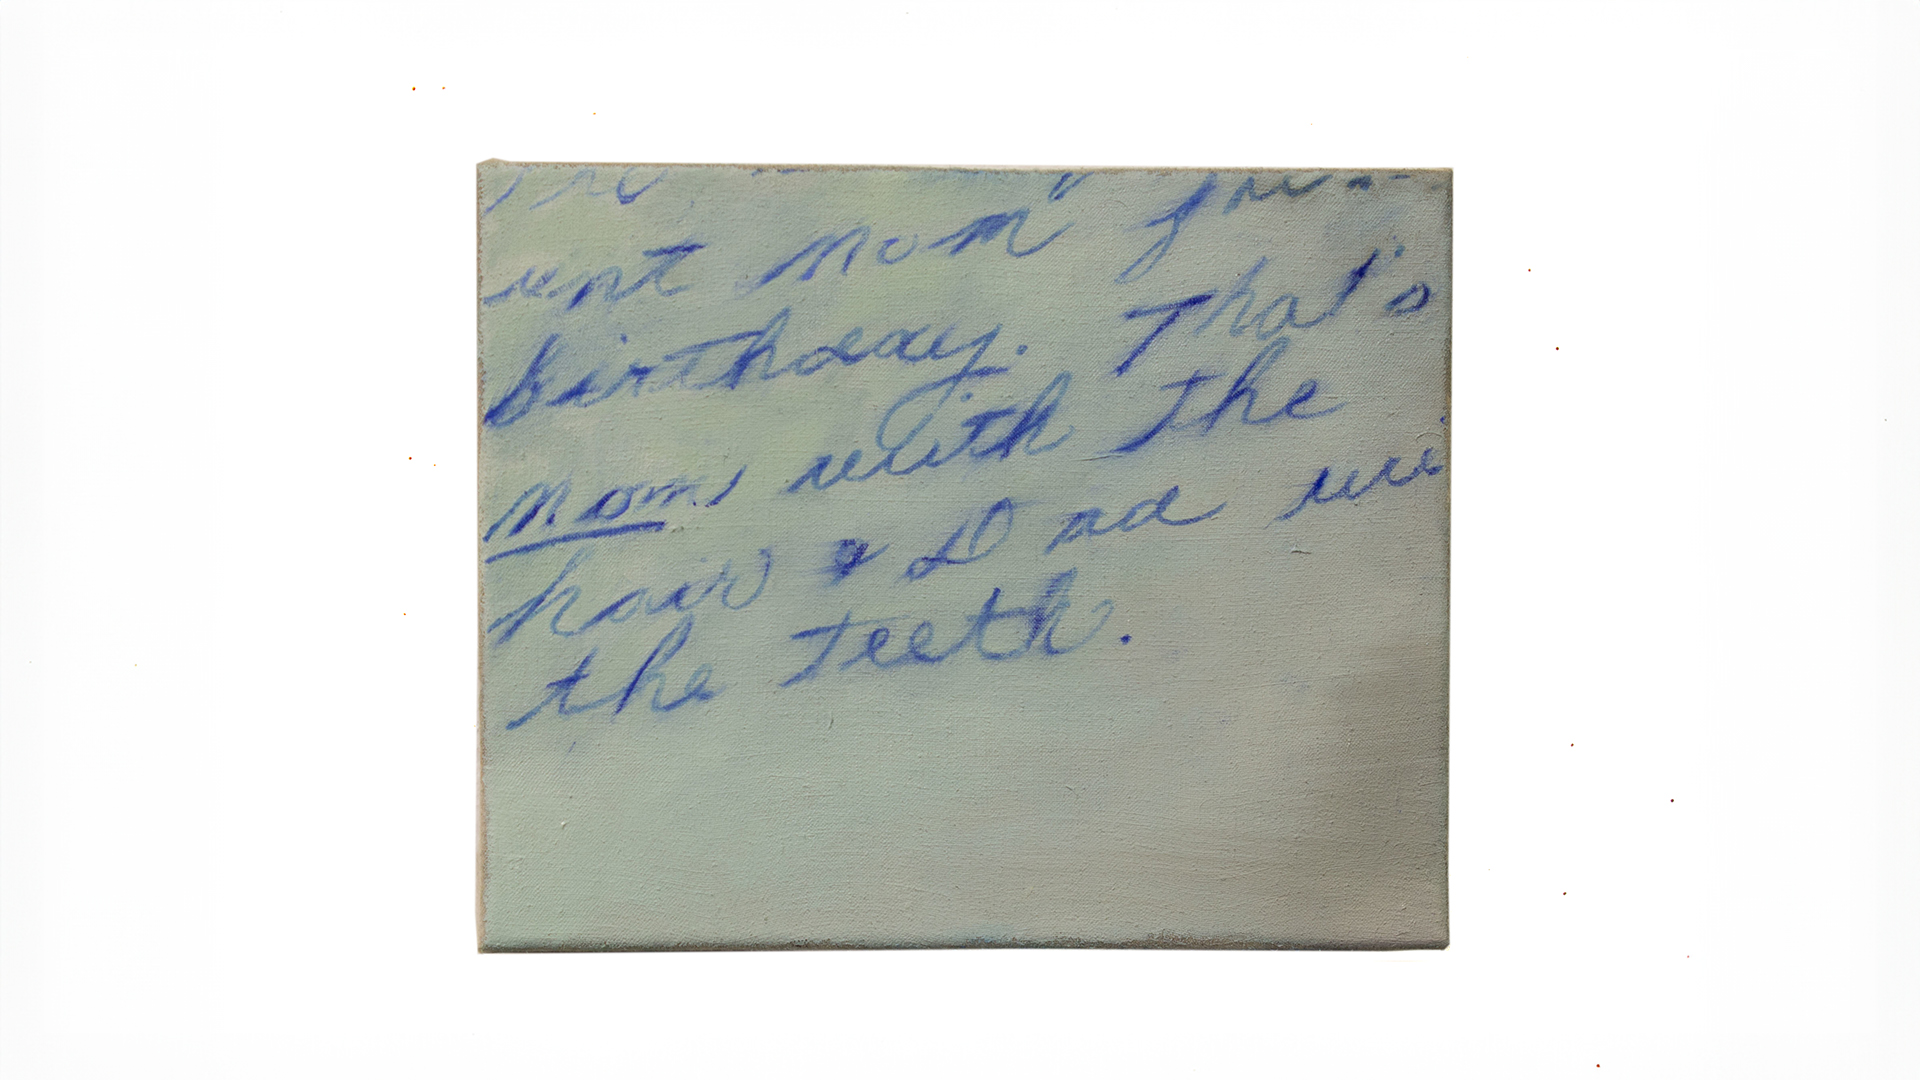 ent mom"
birthday. That's
Moms with the
hair & Dad wi
the teeth.